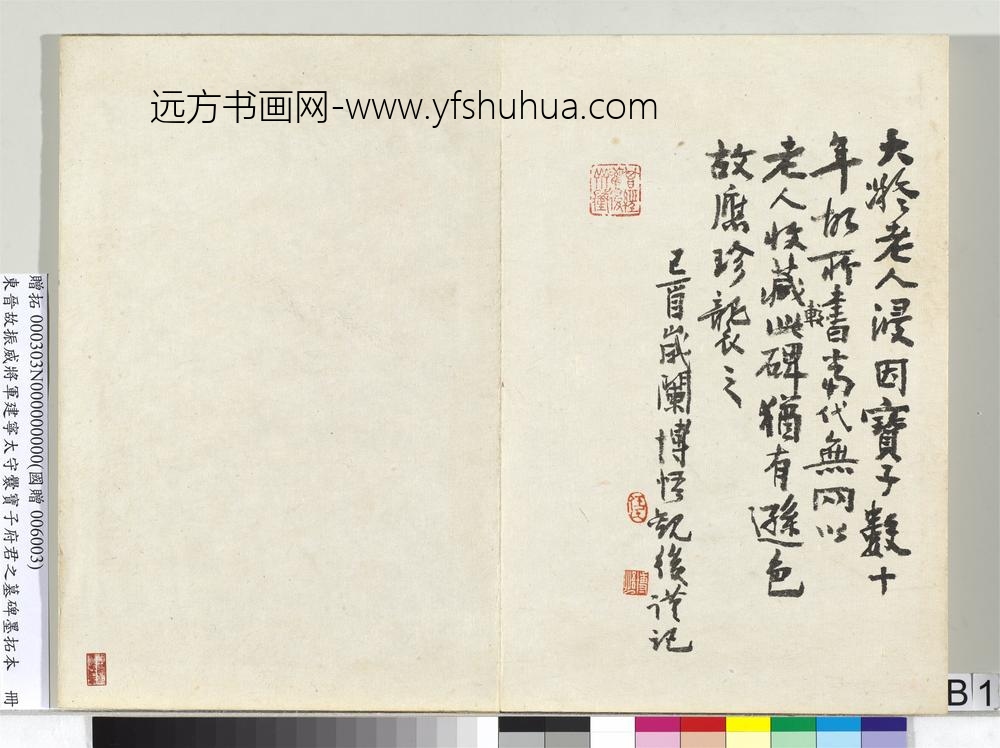 远方书画网-www.yfshuhua.com
大㱔老人浸因寶子數十
年如所書當代無兩以
老人收藏此碑較猶有遜色
故應珍襲之
己酉歲闌博悟觀後謹記
贈拓 000303N000000000(國贈 006003)
東晉故振威將軍建寧太守爨寶子府君之墓碑墨拓本 冊
B 1